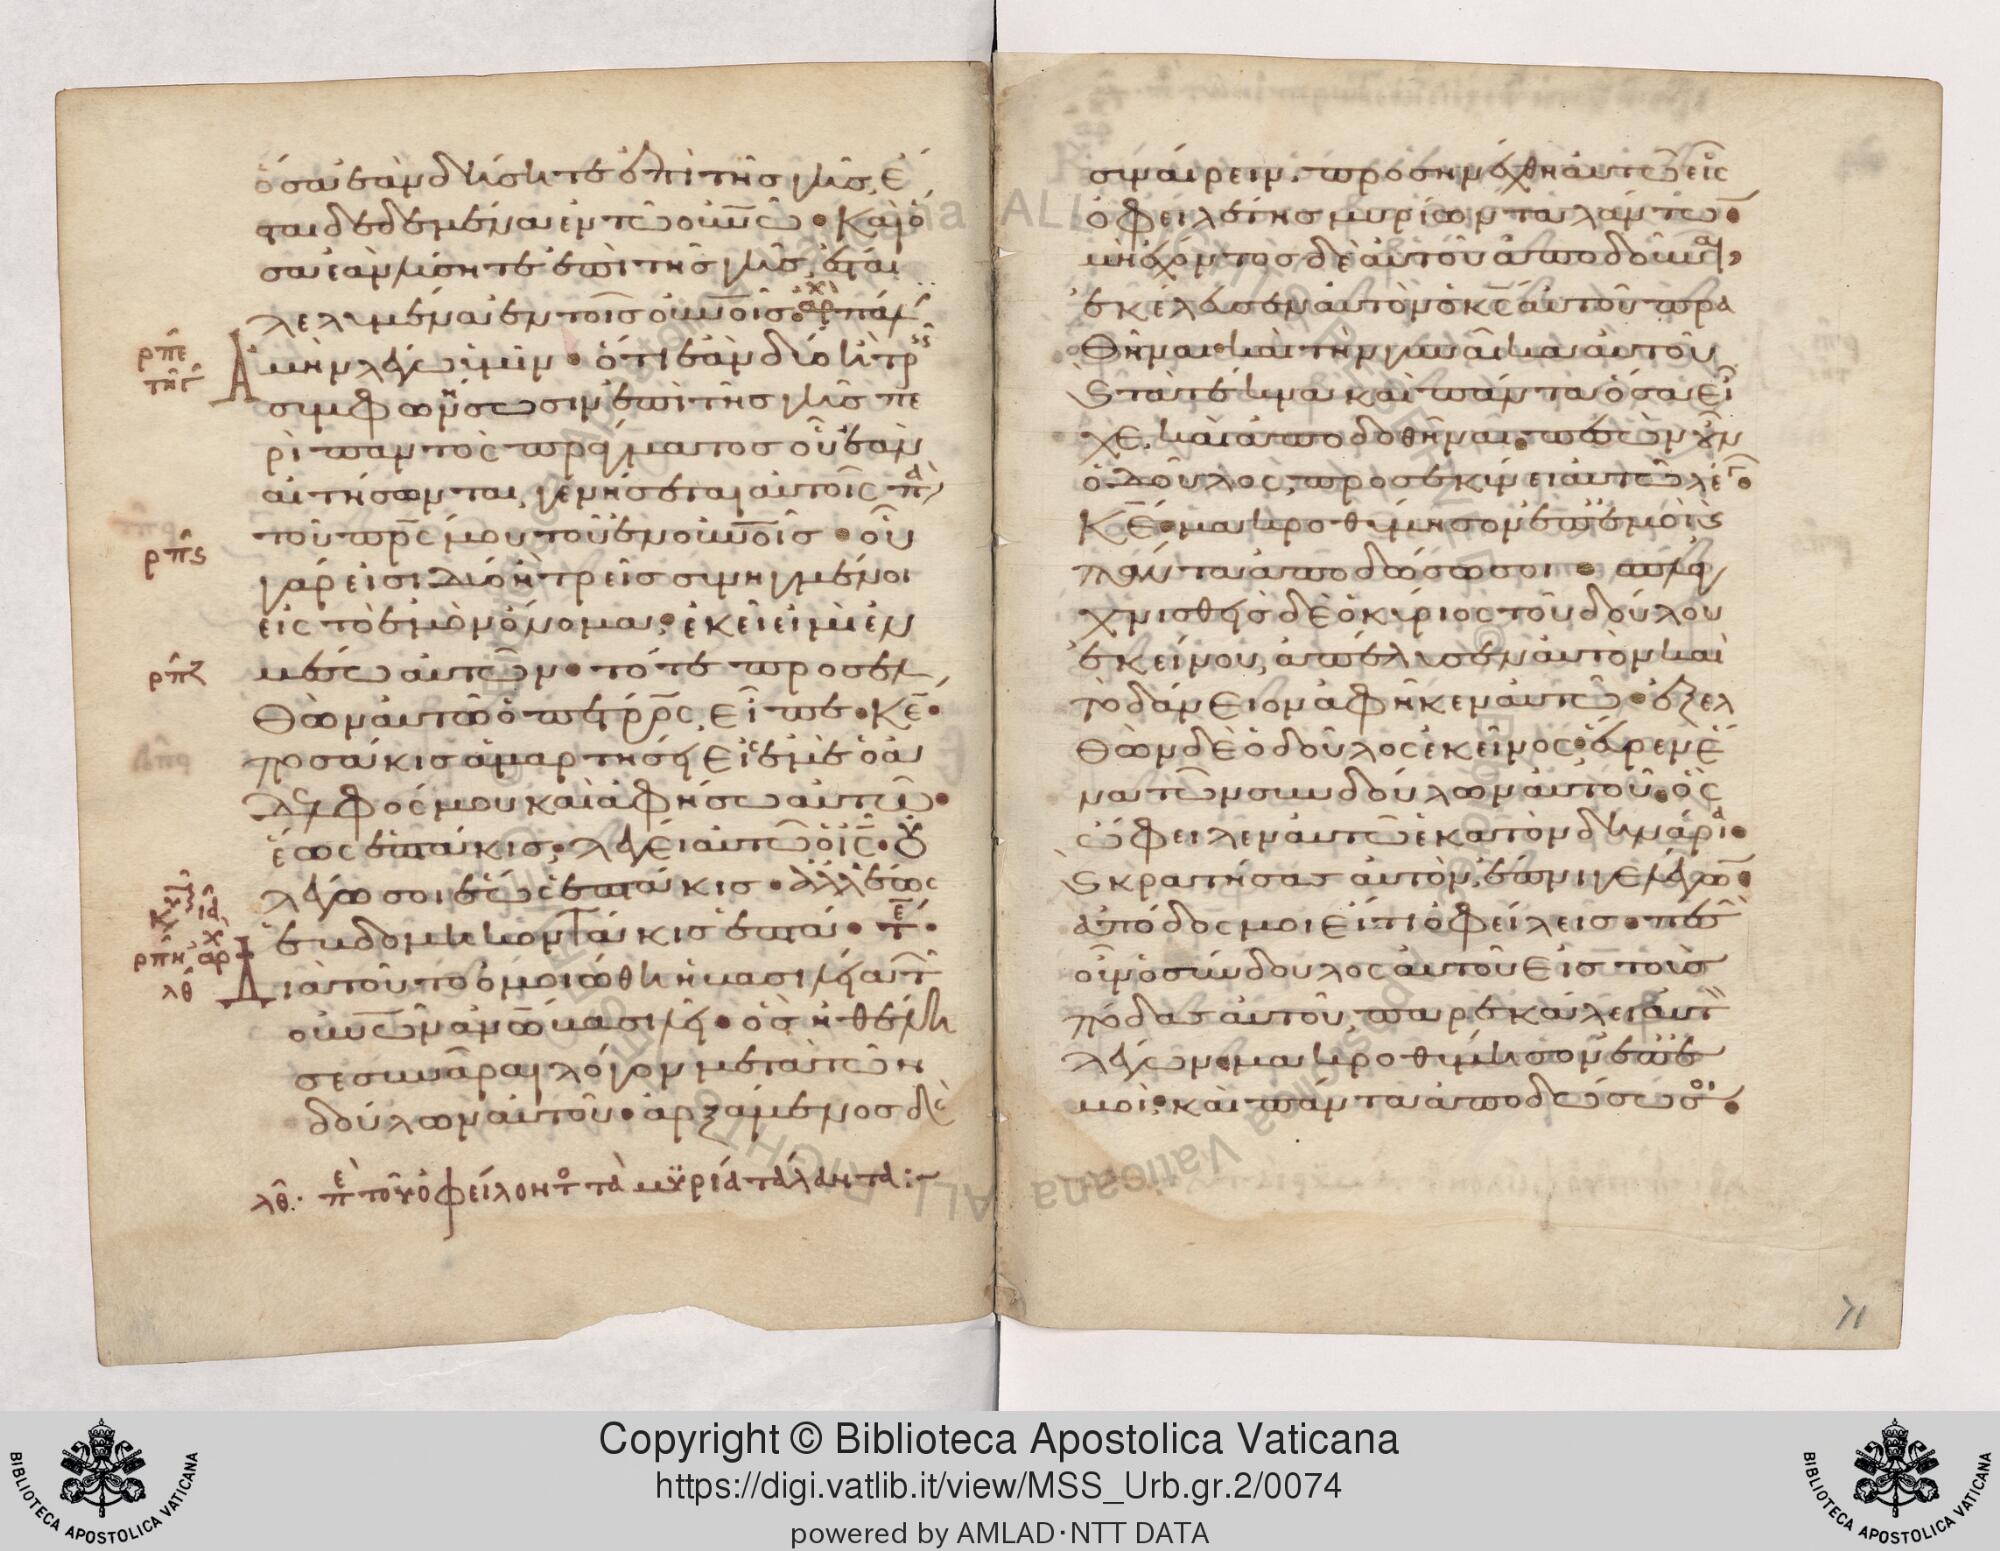 ὅσα ἐὰν δήσητε ἐπὶ τῆς γῆς, ἔ
ται δεδεμένα ἐν τῶ οὐνῶ· Καὶ ὅ
σα ἐὰν λύσητε ἐπὶ τῆς γῆς, ἔσται
λελυμένα ἐν τοῖς οὐνοῖς· πάλ
Ἀμὴν λέγω ὑμῖν· ὅτι ἐὰν δύο ἢ τρ
συμφωνήσωσιν ἐπὶ τῆς γῆς πε
ρὶ παντὸς πράγματος οὗ ἐὰν
αἰτήσωνται, γενήσεται αὐτοῖς π
τοῦ πρς μου τοῦ ἐν οὐνοῖς· οὗ
γάρ εἰσι δύο ἢ τρεῖς συνηγμένοι
εἰς τὸ ἐμὸν ὄνομα, ἐκεῖ εἰμὶ ἐν
μέσω αὐτῶν· τότε προσελ
θὼν αὐτῶ ὁ πέτρος, εἶπε· κε·
ποσάκις ἁμαρτήσει εἰς ἐμὲ ὁ ἀ
δελφός μου καὶ ἀφήσω αὐτῶ·
ἕως ἑπτάκις· λέγει αὐτῶ ὁ ις· οὐ
λέγω σοι ἕως ἑπτάκις· ἀλλ' ἕως
ἑβδομηκοντάκις ἑπτά· τε·
Διὰ τοῦτο ὁμοιώθη ἡ βασιλεία τ
οὐνῶν ἀνω βασιλεῖ· ὃς ἠθέλη
σε συνᾶραι λόγον μετὰ τῶν
δούλων αὐτοῦ· ἀρξαμένος δὲ
ρπε
τῆ γ
ρπς
ρπζ
κυ ια
ρπη ἀρχ
λθ
λθ· πε τοῦ ὀφείλοντ τὰ μυρία τάλαντα:~
συναίρειν, προσηνέχθη αὐτῶ εἷς
ὀφειλέτης μυρίων ταλάντω·
μὴ ἔχοντος δὲ αὐτοῦ ἀποδοῦναι,
ἐκέλευσεν αὐτὸν ὁ κς αὐτοῦ πρα
θῆναι· καὶ τὴν γυναῖκα αὐτοῦ
ϛ τὰ τέκνα καὶ πάντα ὅσα εἶ
χε, καὶ ἀποδοθῆναι· πεσὼν οὖν
ὁ δοῦλος, προσεκύνει αὐτῶ λέγ·
κε· μακροθύμησον ἐπ' ἐμοὶ ϛ
πάντα ἀποδώσω σοι· σπλα
χνισθεὶς δὲ ὁ κύριος τοῦ δούλου
ἐκείνου, ἀπέλυσεν αὐτὸν καὶ
τὸ δάνειον ἀφῆκεν αὐτῶ· ἐξελ
θὼν δὲ ὁ δοῦλος ἐκεῖνος, εὗρεν ἕ
να τῶν συνδούλων αὐτοῦ· ὃς
ὤφειλεν αὐτῶ ἑκατὸν δηνάρια·
ϛ κρατήσας αὐτὸν, ἔπνιγε λέγω·
ἀπόδος μοι εἴ τι ὀφείλεις· πεσ
οὖν ὁ σύνδουλος αὐτοῦ εἰς τοὺς
πόδας αὐτοῦ, παρεκάλει αὐτ
λέγων· μακροθύμησον ἐπ' ἐ
μοὶ, καὶ πάντα ἀποδώσω σοι·
71
Copyright © Biblioteca Apostolica Vaticana
https://digi.vatlib.it/view/MSS_Urb.gr.2/0074
powered by AMLAD·NTT DATA
BIBLIOTECA APOSTOLICA VATICANA
BIBLIOTECA APOSTOLICA VATICANA